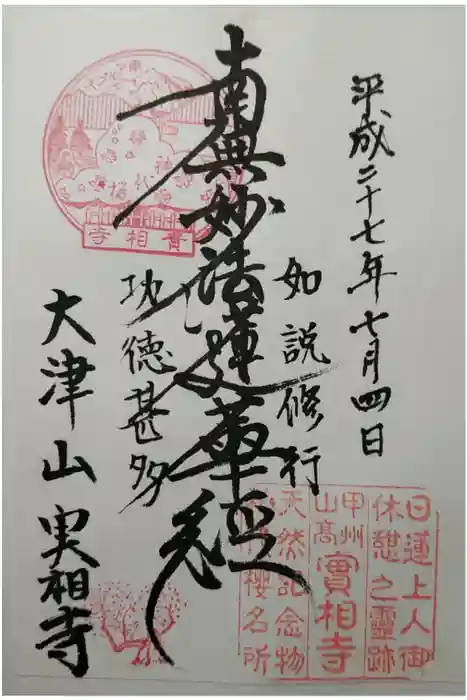 平成二十七年七月四日
如説修行
南無妙法蓮華経
功徳甚多
大津山 実相寺
實相寺
神代桜
日蓮上人御
休憩之靈跡
甲州
山高
實相寺
天然記念物
櫻名所